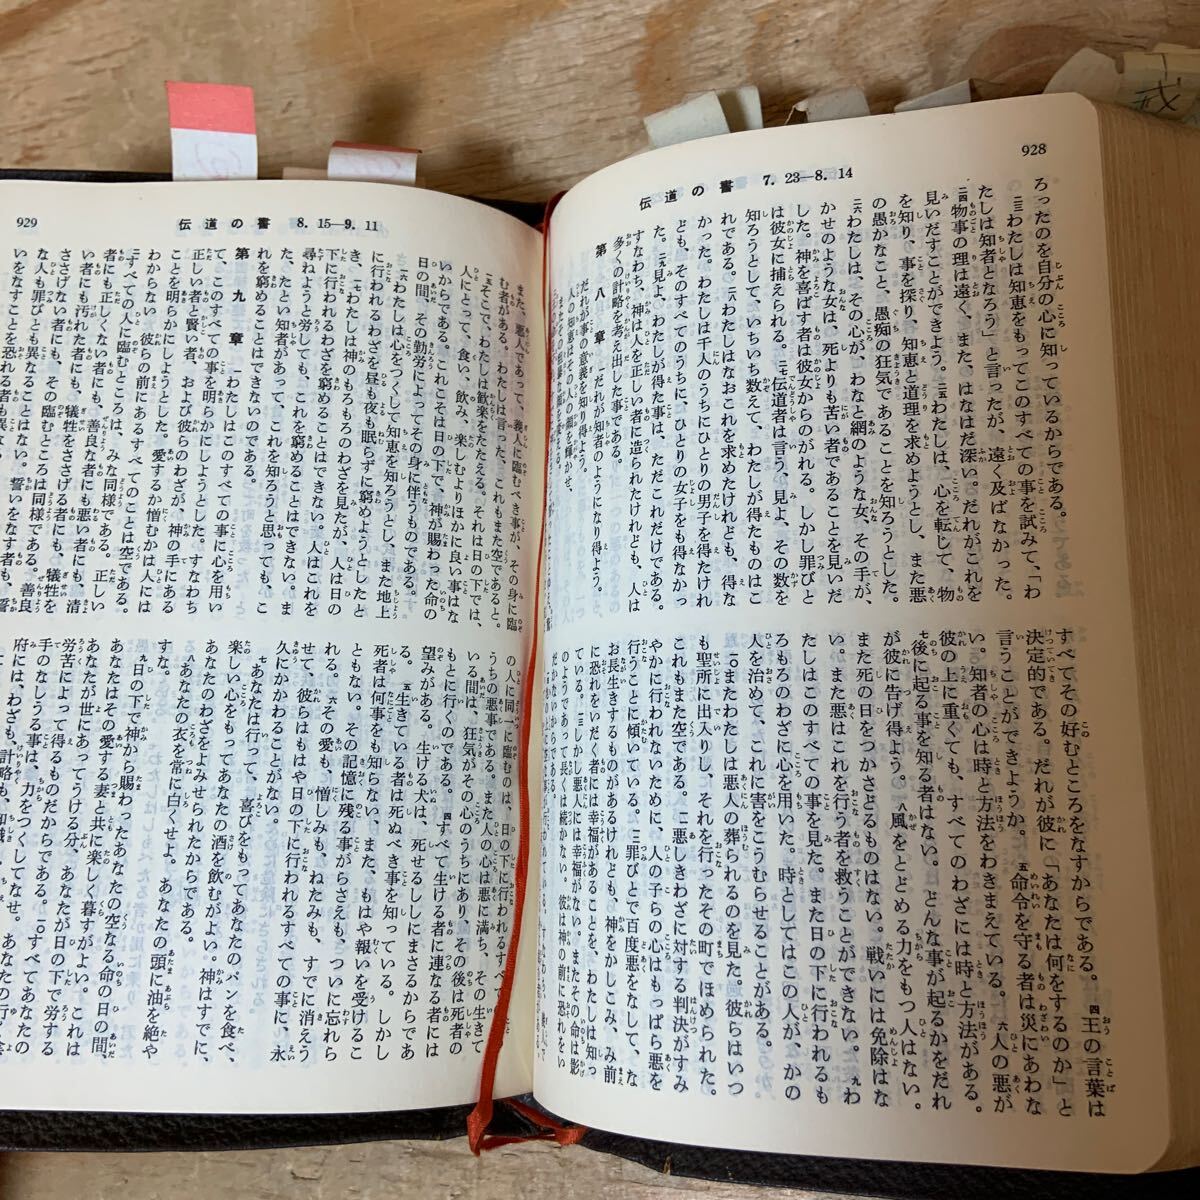 928
伝道の書 7.23—8.14
ろったのを自分の心に知っているからである。
二三わたしは知恵をもってこのすべての事を試みて、「わ
たしは知者となろう」と言ったが、遠く及ばなかった。
二四物事の理は遠く、また、はなはだ深い。だれがこれを
見いだすことができよう。二五わたしは、心を転じて、物
を知り、事を探り、知恵と道理を求めようとし、また悪
の愚かなこと、愚痴の狂気であることを知ろうとした。
二六わたしは、その心が、わなと網のような女、その手が、
かせのような女は、死よりも苦い者であることを見いだ
した。神を喜ばす者は彼女からのがれる。しかし罪びと
は彼女に捕えられる。二七伝道者は言う、見よ、その数を
知ろうとして、いちいち数えて、わたしが得たものはこ
れである。二八わたしはなおこれを求めたけれども、得な
かった。わたしは千人のうちにひとりの男子を得たけれ
ども、そのすべてのうちに、ひとりの女子をも得なかっ
た。二九見よ、わたしが得た事は、ただこれだけである。
すなわち、神は人を正しい者に造られたけれども、人は
多くの計略を考え出した事である。
第八章 一だれが知者のようになり得よう。
だれが事の意義を知り得よう。
人の知恵はその人の顔を輝かせ、
すべてその好むところをなすからである。四王の言葉は
決定的である。だれが彼に「あなたは何をするのか」と
言うことができようか。五命令を守る者は災にあわな
い。知者の心は時と方法をわきまえている。六人の悪が
彼の上に重くても、すべてのわざには時と方法がある。
七後に起る事を知る者はない。どんな事が起るかをだれ
が彼に告げ得よう。八風をとどめる力をもつ人はない。
また死の日をつかさどるものはない。戦いには免除はな
い。また悪はこれを行う者を救うことができない。九わ
たしはこのすべての事を見た。また日の下に行われるも
ろもろのわざに心を用いた。時としてはこの人が、かの
人を治めて、これに害をこうむらせることがある。
一〇またわたしは悪人の葬られるのを見た。彼らはいつ
も聖所に出入りし、それを行ったその町でほめられた。
これもまた空である。二悪しきわざに対する判決がすみ
やかに行われないために、人の子らの心はもっぱら悪を
行うことに傾いている。三罪びとで百度悪をなして、な
お長生きするものがあるけれども、神をかしこみ、み前
に恐れをいだく者には幸福があることを、わたしは知っ
ている。三しかし悪人には幸福がない。またその命は影
のようであって長くは続かない。彼は神の前に恐れをい
だかないからである。
929
伝道の書 8.15—9.11
また、悪人であって、義人に臨むべき事が、その身に臨
む者がある。わたしは言った、これもまた空であると。
一五そこで、わたしは歓楽をたたえる。それは日の下では、
人にとって、食い、飲み、楽しむよりほかに良い事はな
いからである。これこそは日の下で、神が賜わった命の
日の間、その勤労によってその身に伴うものである。
一六わたしは心をつくして知恵を知ろうとし、また地上
に行われるわざを昼も夜も眠らずに窮めようとしたと
き、一七わたしは神のもろもろのわざを見たが、人は日の
下に行われるわざを窮めることはできない。人はこれを
尋ねようと労しても、これを窮めることはできない。ま
た、たとい知者があって、これを知ろうと思っても、こ
れを窮めることはできないのである。
第九章 一わたしはこのすべての事に心を用い
て、このすべての事を明らかにしようとした。すなわち
正しい者と賢い者、および彼らのわざが、神の手にある
ことを明らかにしようとした。愛するか憎むかは人には
わからない。彼らの前にあるすべてのことは空である。
二すべての人に臨むところは、みな同様である。正しい
者にも正しくない者にも、善良な者にも悪い者にも、清
い者にも汚れた者にも、犠牲をささげる者にも、犠牲を
ささげない者にも、その臨むところは同様である。善良
な人も罪びとも異なることはない。誓いをなす者も、誓
いをなすことを恐れる者も
の人に同一に臨むのは、日の下に行われるすべての事の
うちの悪事である。また人の心は悪に満ち、その生きて
いる間は、狂気がその心のうちにあり、その後は死者の
もとに行くのである。四すべて生ける者に連なる者には
望みがある。生ける犬は、死せるししにまさるからであ
る。五生きている者は死ぬべき事を知っている。しかし
死者は何事をも知らない、また、もはや報いを受けるこ
ともない。その記憶に残る事がらさえも、ついに忘れら
れる。六その愛も、憎しみも、ねたみも、すでに消えう
せて、彼らはもはや日の下に行われるすべての事に、永
久にかかわることがない。
七あなたは行って、喜びをもってあなたのパンを食べ、
楽しい心をもってあなたの酒を飲むがよい。神はすでに、
あなたのわざをよみせられたからである。
八あなたの衣を常に白くせよ。あなたの頭に油を絶や
すな。
九日の下で神から賜わったあなたの空なる命の日の間、
あなたはその愛する妻と共に楽しく暮すがよい。これは
あなたが世にあってうける分、あなたが日の下で労する
労苦によって得るものだからである。一〇すべてあなたの
手のなしうる事は、力をつくしてなせ。
府には、わざも、計略も、知識